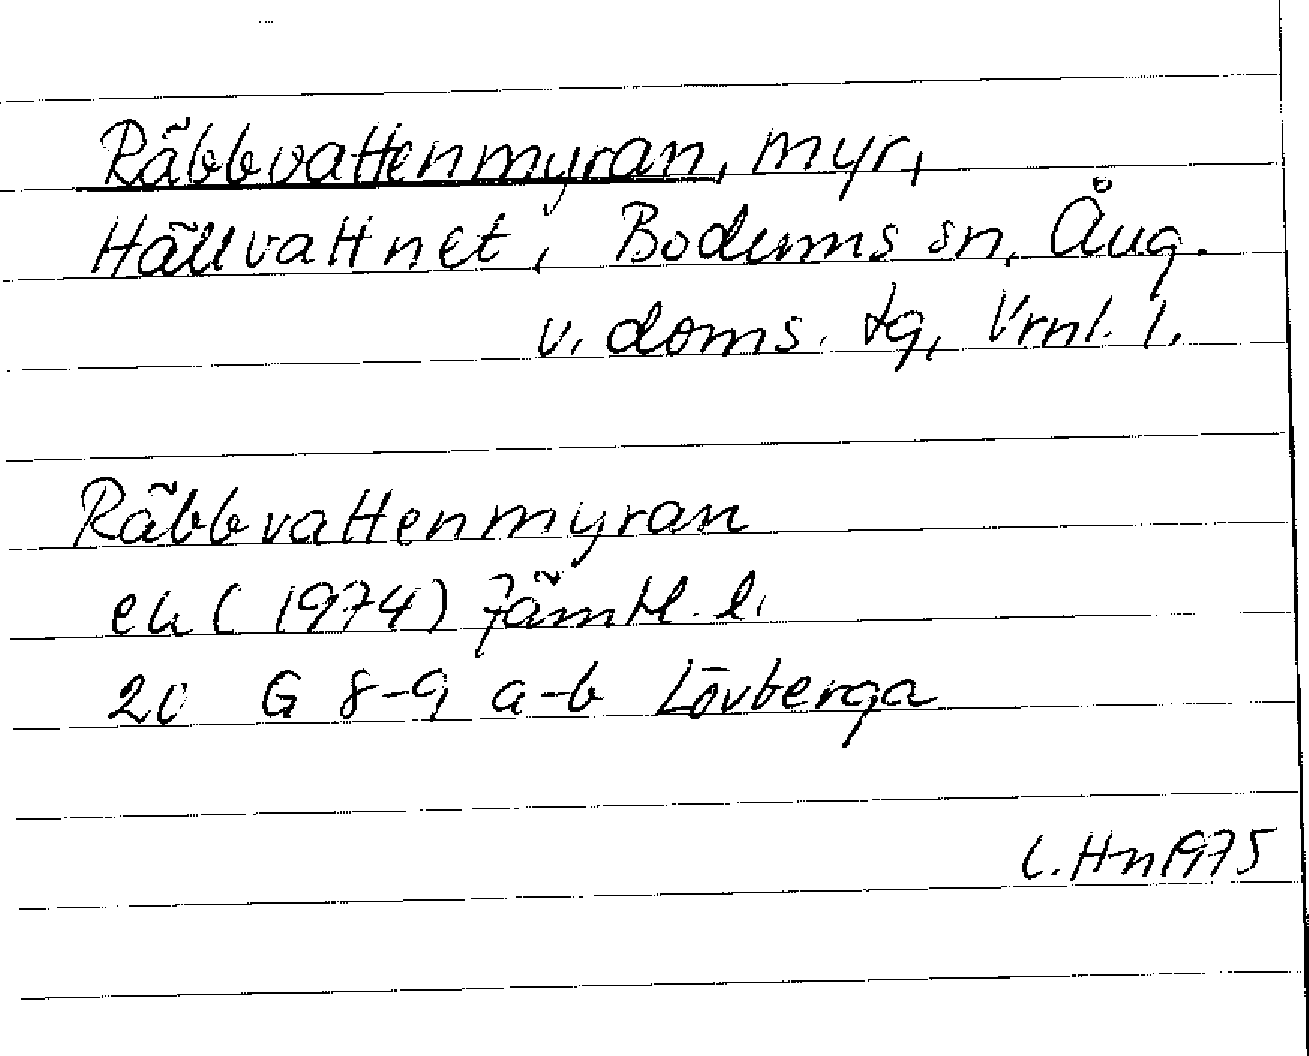 Räbbvattenmyran, myr,
Hällvattnet, Bodums sn, Ång.
v. doms. tg, Vrnl. l.
Räbbvattenmyran
ek (1974) Jämtl. l.
20 G 8-9 a-b Lövberga
C. Hn 1975